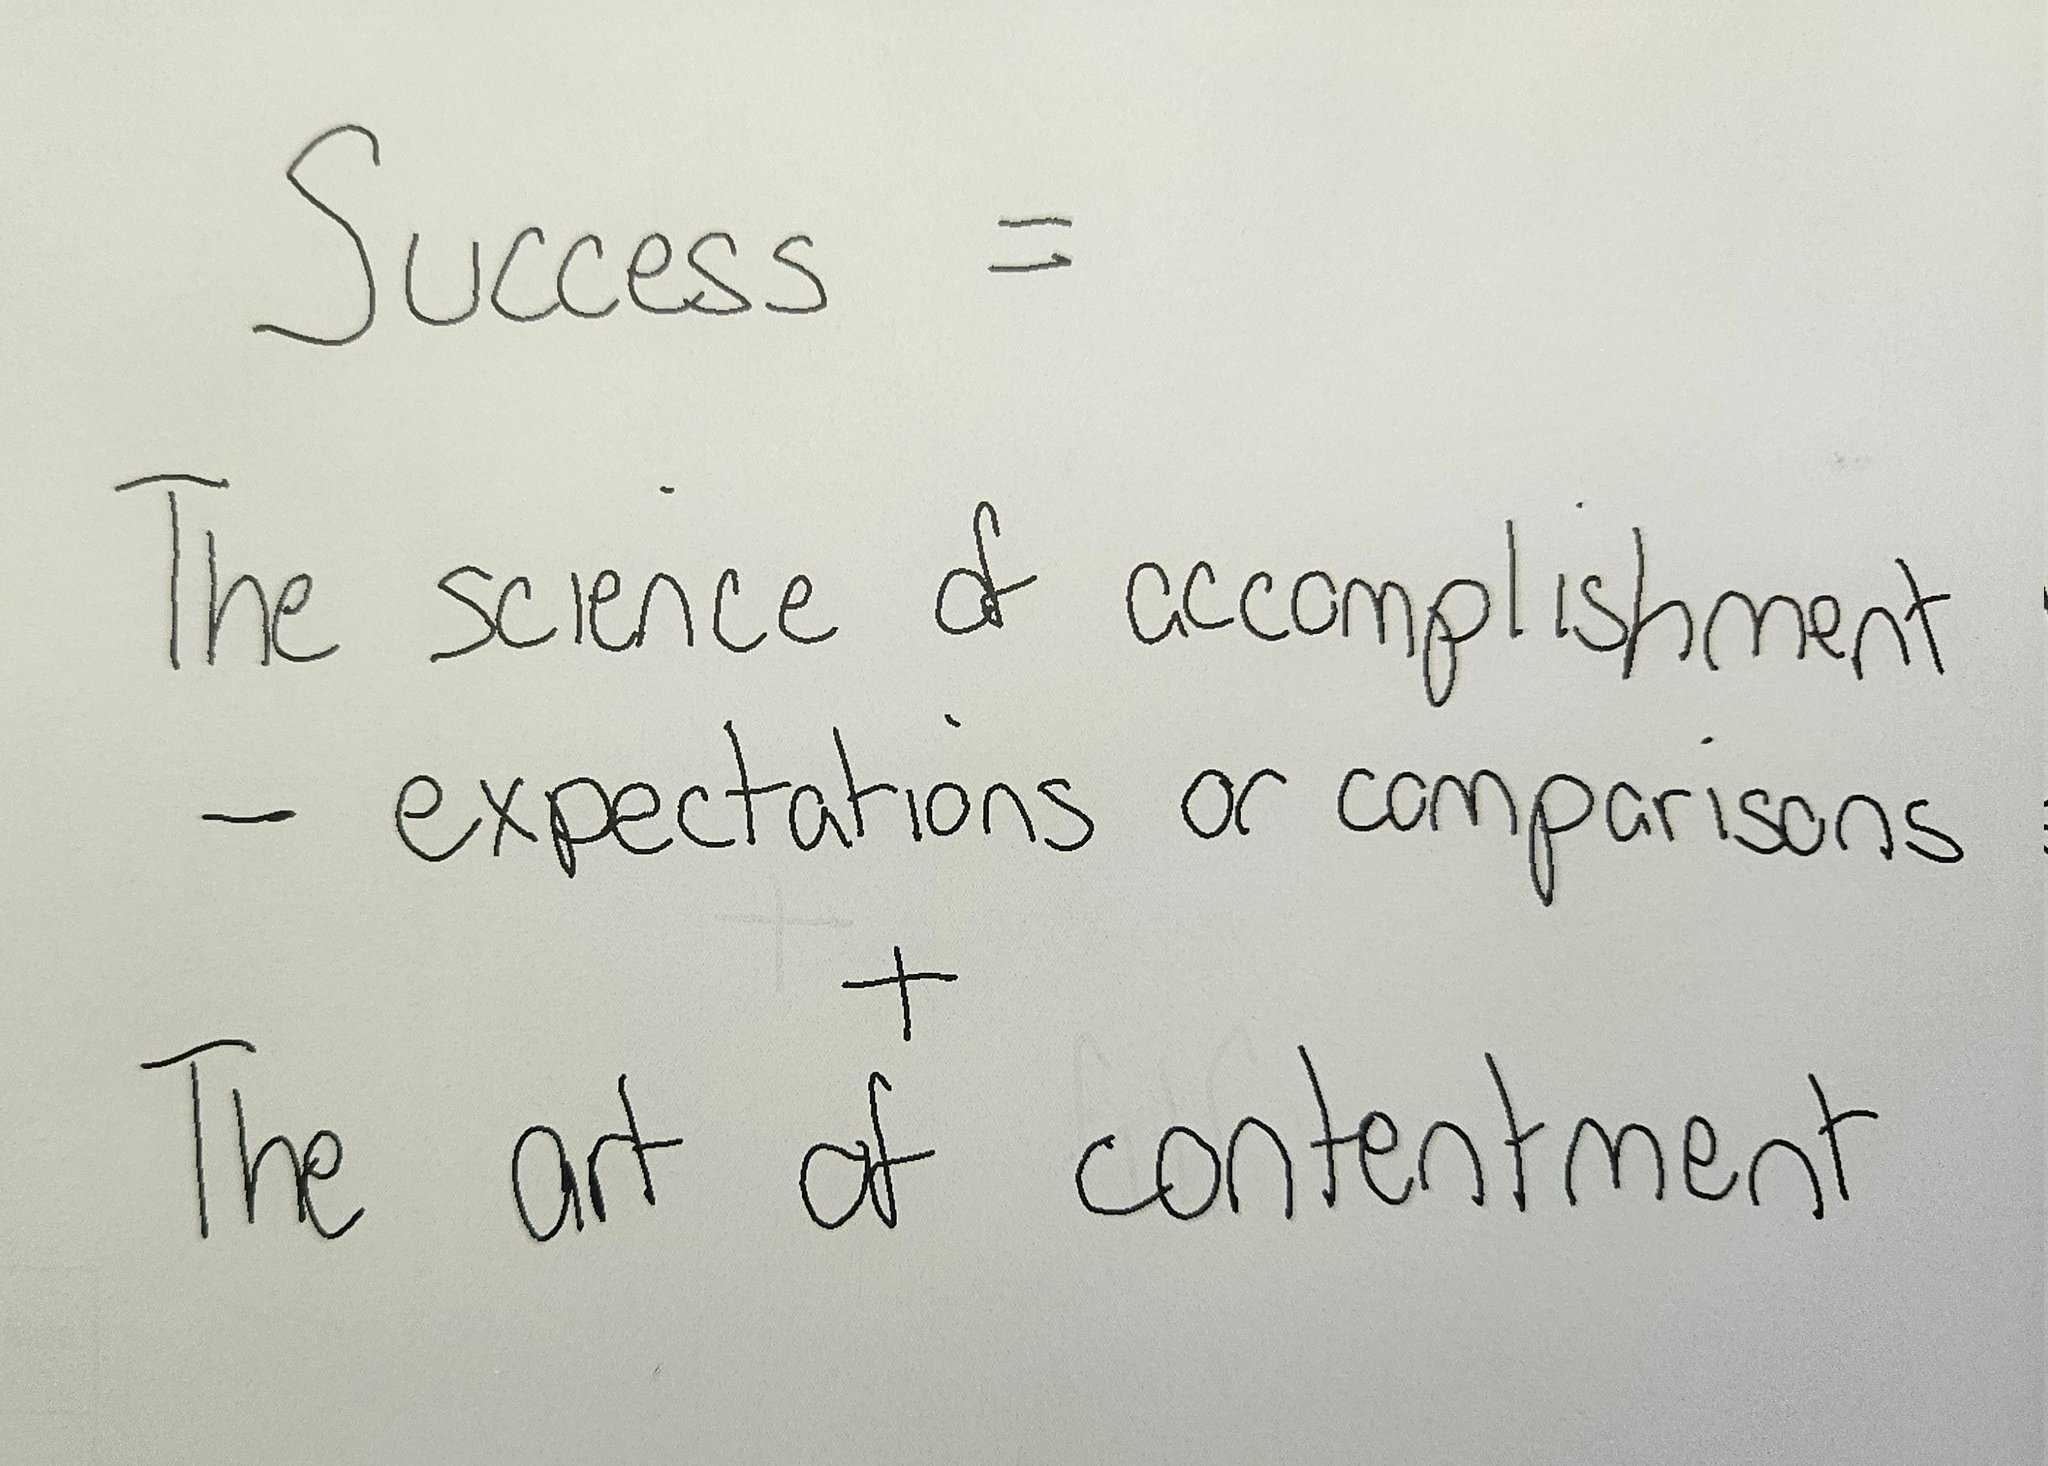 Success =
The science of accomplishment
- expectations or comparisons
+
The art of contentment